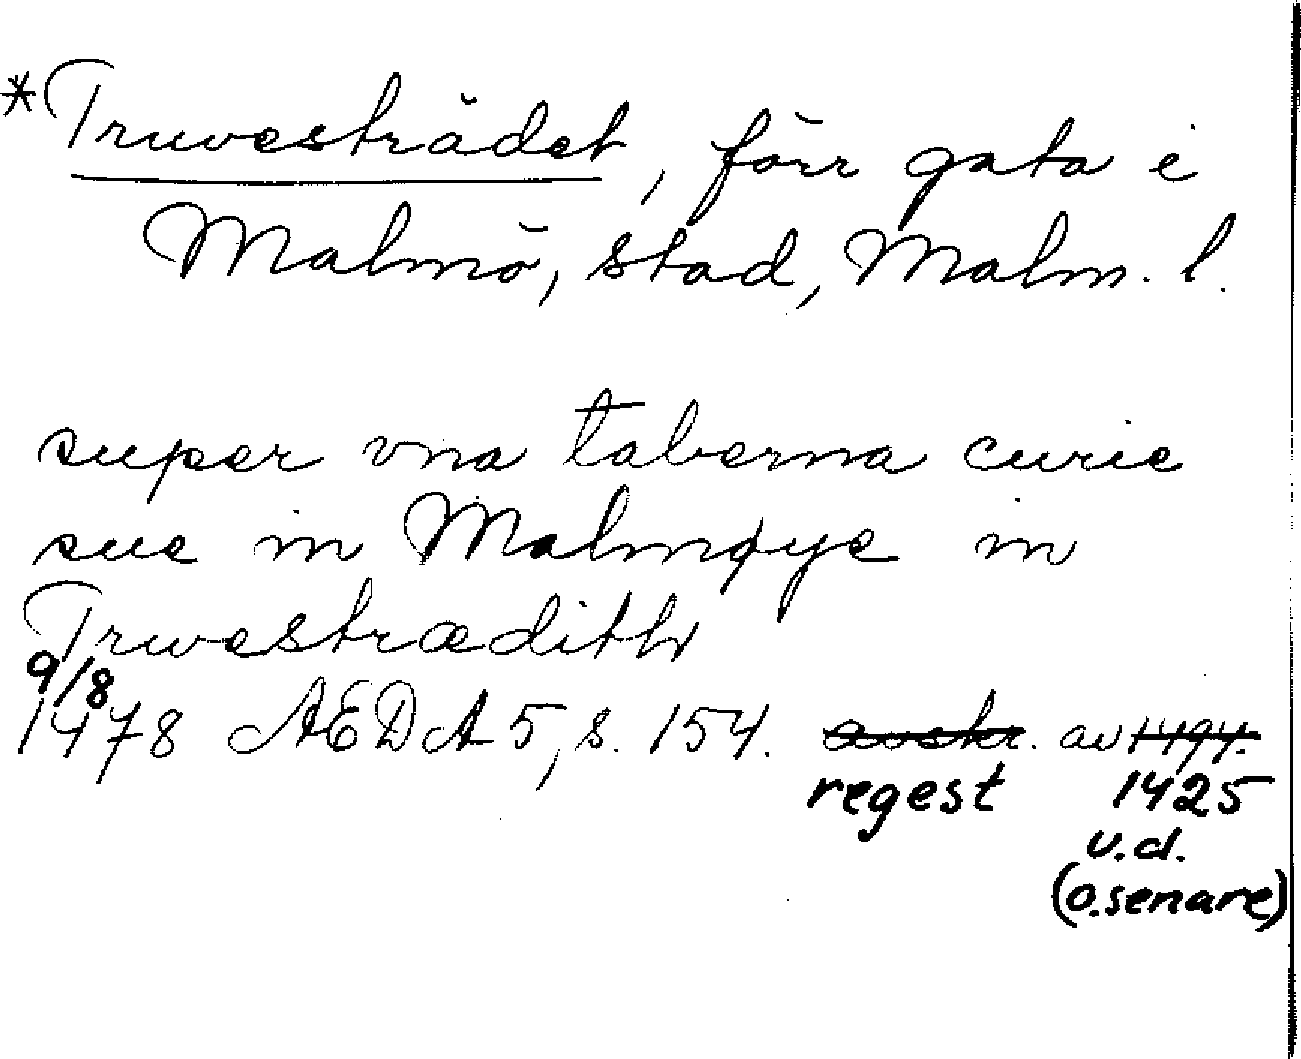 *Truvesträdet, förr gata i
Malmö, stad, Malm. l.
super vna taberna curie
sue in Malmøye in
Trwestrædith
9/8
1478 AEDA 5, s. 154. avskr. av 1494.
regest 1425
u.d.
(o.senare)